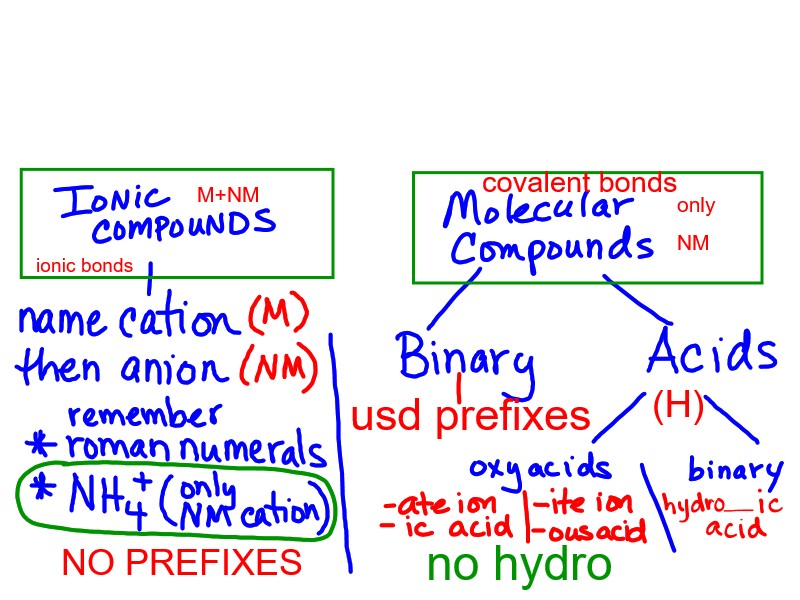 Ionic M+NM
compounds
ionic bonds
name cation (M)
then anion (NM)
remember
* roman numerals
* NH₄⁺ (only
NM cation)
NO PREFIXES
covalent bonds
Molecular only
Compounds NM
Binary
usd prefixes
Acids
(H)
oxyacids
-ate ion
-ic acid
-ite ion
-ous acid
no hydro
binary
hydro__ic
acid